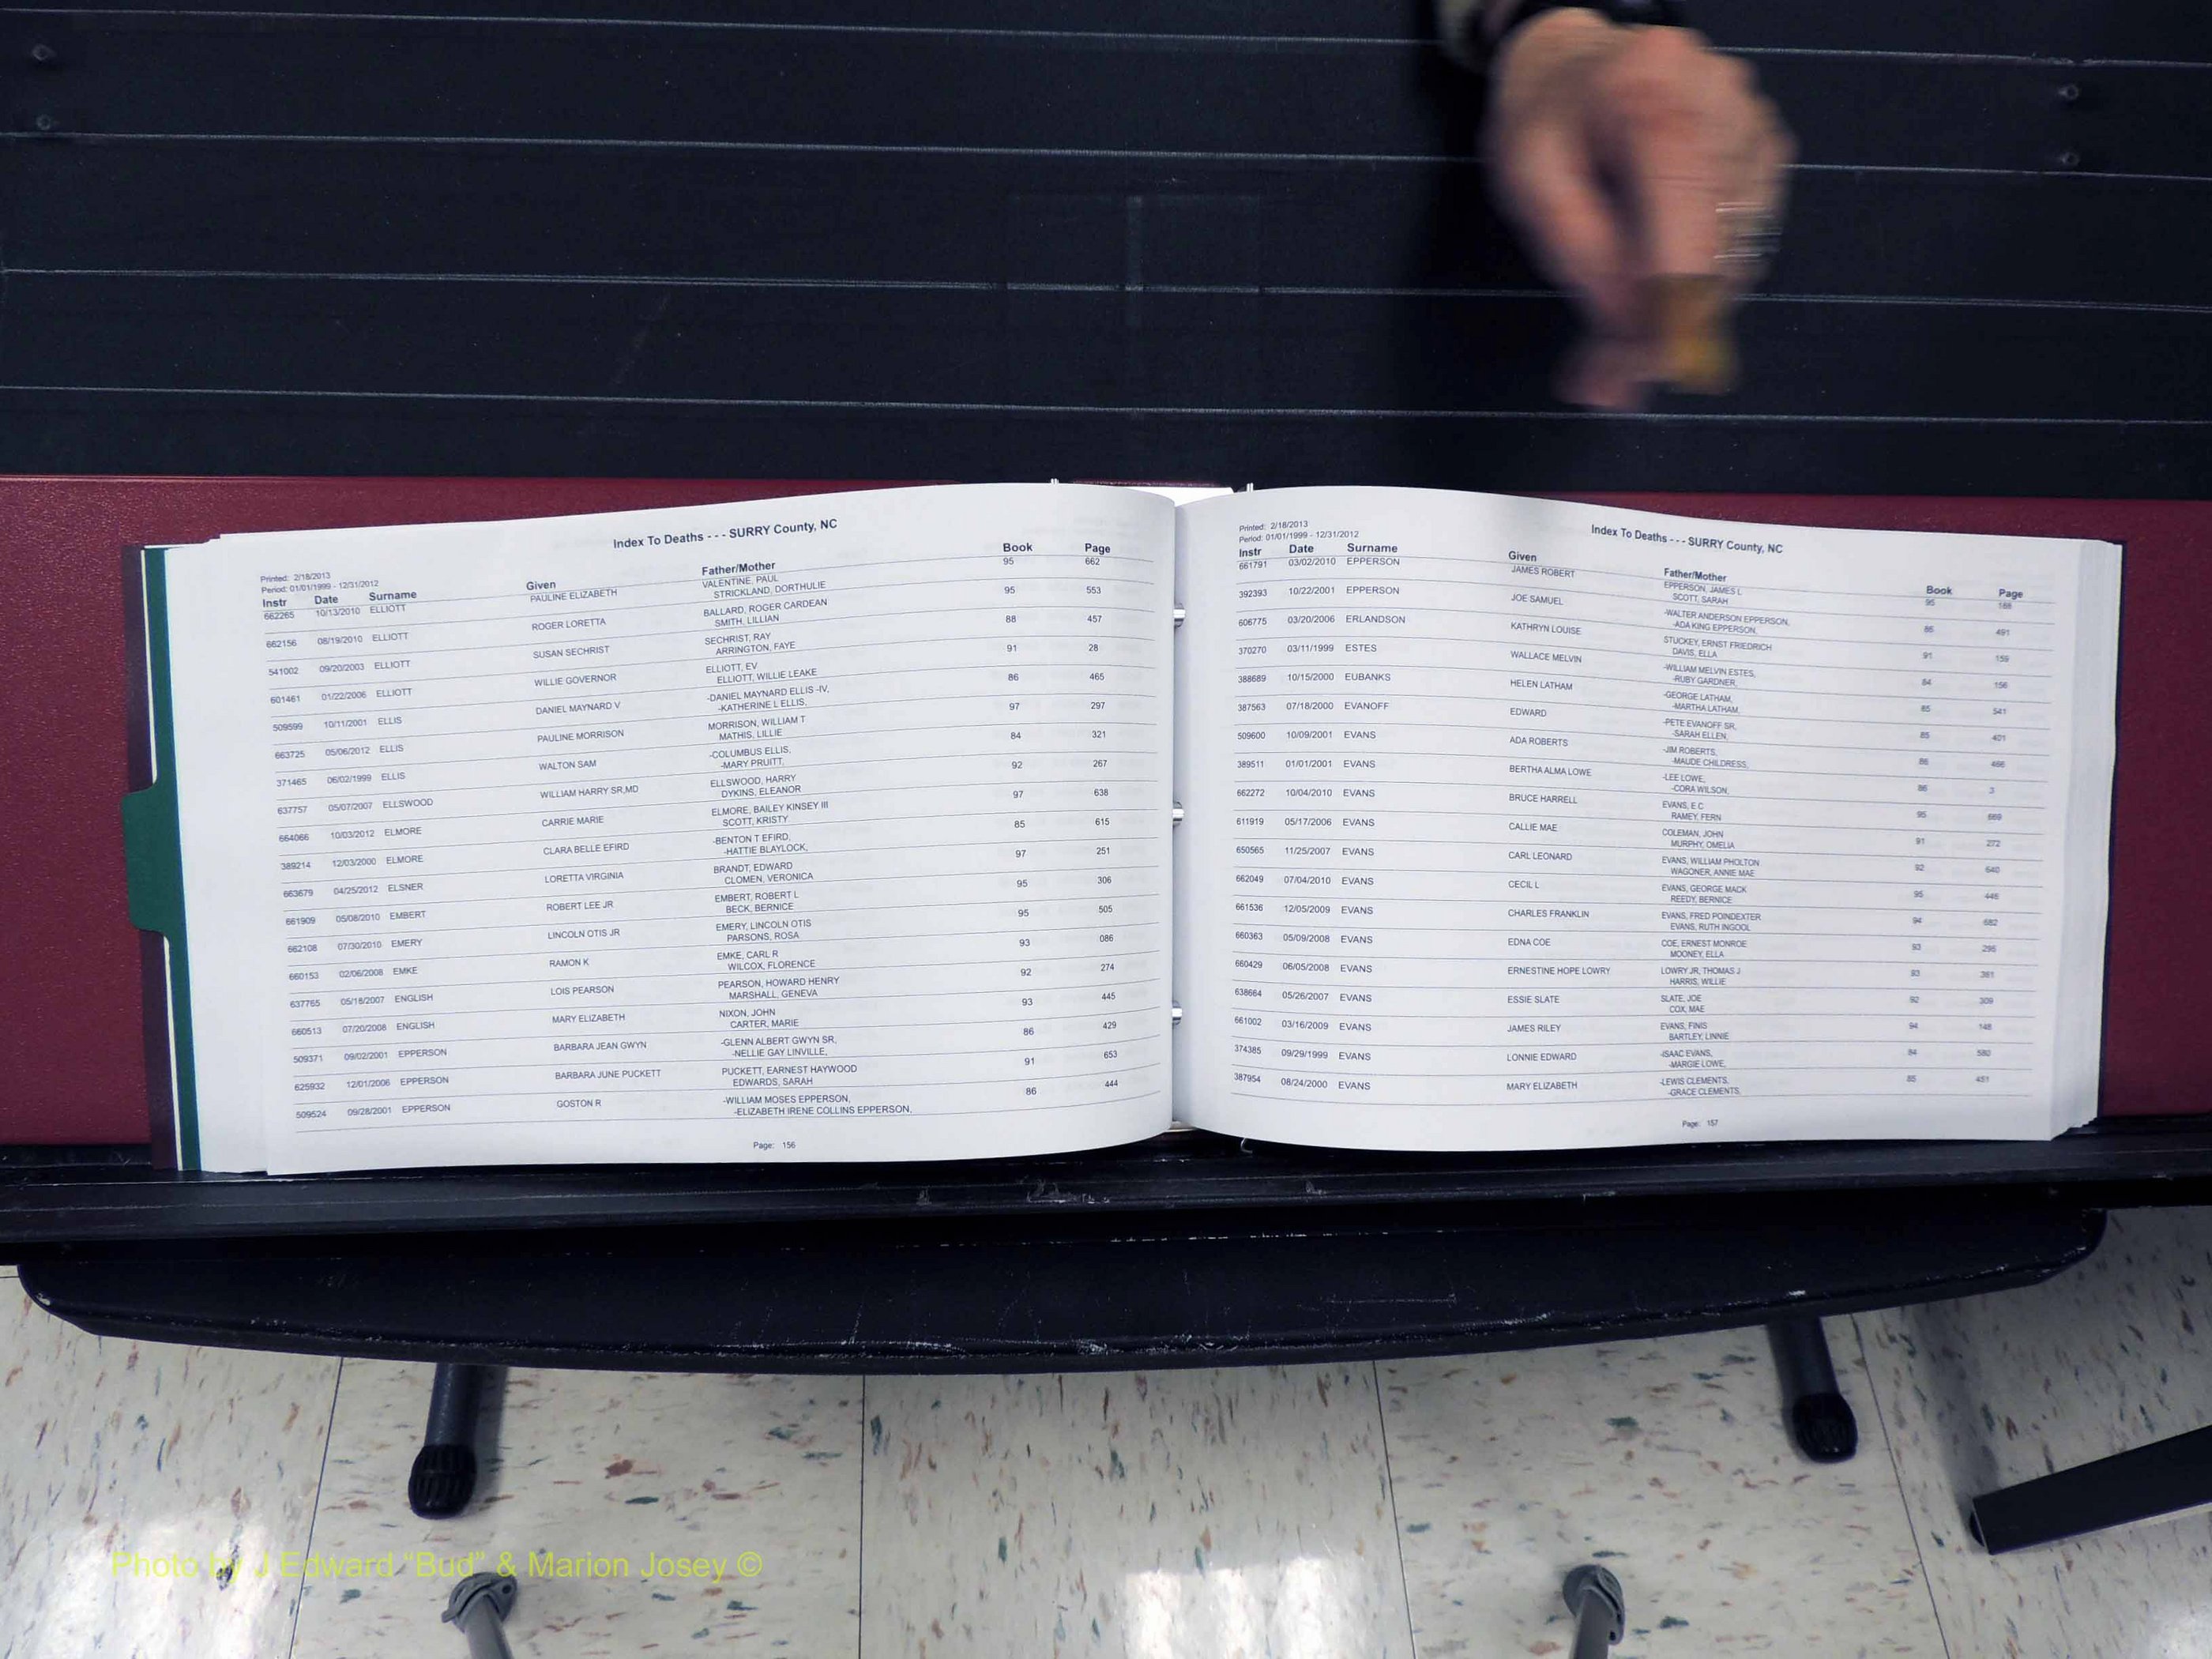 Index To Deaths - - - SURRY County, NC
Printed: 2/18/2013
Period: 01/01/1999 - 12/31/2012
Instr Date Surname Given Father/Mother Book Page
662265 10/13/2010 ELLIOTT PAULINE ELIZABETH VALENTINE, PAUL 95 662
STRICKLAND, DORTHULIE
662156 08/19/2010 ELLIOTT ROGER LORETTA BALLARD, ROGER CARDEAN 95 553
SMITH, LILLIAN
541002 09/20/2003 ELLIOTT SUSAN SECHRIST SECHRIST, RAY 88 457
ARRINGTON, FAYE
601461 01/22/2006 ELLIOTT WILLIE GOVERNOR ELLIOTT, EV 91 28
ELLIOTT, WILLIE LEAKE
509599 10/11/2001 ELLIS DANIEL MAYNARD V -DANIEL MAYNARD ELLIS -IV, 86 465
-KATHERINE L ELLIS,
663725 05/06/2012 ELLIS PAULINE MORRISON MORRISON, WILLIAM T 97 297
MATHIS, LILLIE
371465 06/02/1999 ELLIS WALTON SAM -COLUMBUS ELLIS, 84 321
-MARY PRUITT,
637757 05/07/2007 ELLSWOOD WILLIAM HARRY SR,MD ELLSWOOD, HARRY 92 267
DYKINS, ELEANOR
664066 10/03/2012 ELMORE CARRIE MARIE ELMORE, BAILEY KINSEY III 97 638
SCOTT, KRISTY
389214 12/03/2000 ELMORE CLARA BELLE EFIRD -BENTON T EFIRD, 85 615
-HATTIE BLAYLOCK,
663679 04/25/2012 ELSNER LORETTA VIRGINIA BRANDT, EDWARD 97 251
CLOMEN, VERONICA
661909 05/08/2010 EMBERT ROBERT LEE JR EMBERT, ROBERT L 95 306
BECK, BERNICE
662108 07/30/2010 EMERY LINCOLN OTIS JR EMERY, LINCOLN OTIS 95 505
PARSONS, ROSA
660153 02/06/2008 EMKE RAMON K EMKE, CARL R 93 086
WILCOX, FLORENCE
637765 05/18/2007 ENGLISH LOIS PEARSON PEARSON, HOWARD HENRY 92 274
MARSHALL, GENEVA
660513 07/20/2008 ENGLISH MARY ELIZABETH NIXON, JOHN 93 445
CARTER, MARIE
509371 09/02/2001 EPPERSON BARBARA JEAN GWYN -GLENN ALBERT GWYN SR, 86 429
-NELLIE GAY LINVILLE,
625932 12/01/2006 EPPERSON BARBARA JUNE PUCKETT PUCKETT, EARNEST HAYWOOD 91 653
EDWARDS, SARAH
509524 09/28/2001 EPPERSON GOSTON R -WILLIAM MOSES EPPERSON, 86 444
-ELIZABETH IRENE COLLINS EPPERSON,
Page: 156
Index To Deaths - - - SURRY County, NC
Printed: 2/18/2013
Period: 01/01/1999 - 12/31/2012
Instr Date Surname Given Father/Mother Book Page
661791 03/02/2010 EPPERSON JAMES ROBERT EPPERSON, JAMES L 95 188
SCOTT, SARAH
392393 10/22/2001 EPPERSON JOE SAMUEL -WALTER ANDERSON EPPERSON, 86 491
-ADA KING EPPERSON,
606775 03/20/2006 ERLANDSON KATHRYN LOUISE STUCKEY, ERNST FRIEDRICH 91 159
DAVIS, ELLA
370270 03/11/1999 ESTES WALLACE MELVIN -WILLIAM MELVIN ESTES, 84 156
-RUBY GARDNER,
388689 10/15/2000 EUBANKS HELEN LATHAM -GEORGE LATHAM, 85 541
-MARTHA LATHAM,
387563 07/18/2000 EVANOFF EDWARD -PETE EVANOFF SR, 85 401
-SARAH ELLEN,
509600 10/09/2001 EVANS ADA ROBERTS -JIM ROBERTS, 86 466
-MAUDE CHILDRESS,
389511 01/01/2001 EVANS BERTHA ALMA LOWE -LEE LOWE, 86 3
-CORA WILSON,
662272 10/04/2010 EVANS BRUCE HARRELL EVANS, E C 95 669
RAMEY, FERN
611919 05/17/2006 EVANS CALLIE MAE COLEMAN, JOHN 91 272
MURPHY, OMELIA
650565 11/25/2007 EVANS CARL LEONARD EVANS, WILLIAM PHOLTON 92 640
WAGONER, ANNIE MAE
662049 07/04/2010 EVANS CECIL L EVANS, GEORGE MACK 95 446
REEDY, BERNICE
661536 12/05/2009 EVANS CHARLES FRANKLIN EVANS, FRED POINDEXTER 94 682
EVANS, RUTH INGOOL
660363 05/09/2008 EVANS EDNA COE COE, ERNEST MONROE 93 295
MOONEY, ELLA
660429 06/05/2008 EVANS ERNESTINE HOPE LOWRY LOWRY JR, THOMAS J 93 361
HARRIS, WILLIE
638664 05/26/2007 EVANS ESSIE SLATE SLATE, JOE 92 309
COX, MAE
661002 03/16/2009 EVANS JAMES RILEY EVANS, FINIS 94 148
BARTLEY, LINNIE
374385 09/29/1999 EVANS LONNIE EDWARD -ISAAC EVANS, 84 580
-MARGIE LOWE,
387954 08/24/2000 EVANS MARY ELIZABETH -LEWIS CLEMENTS, 85 451
-GRACE CLEMENTS,
Page: 157
Photo by J Edward "Bud" & Marion Josey ©